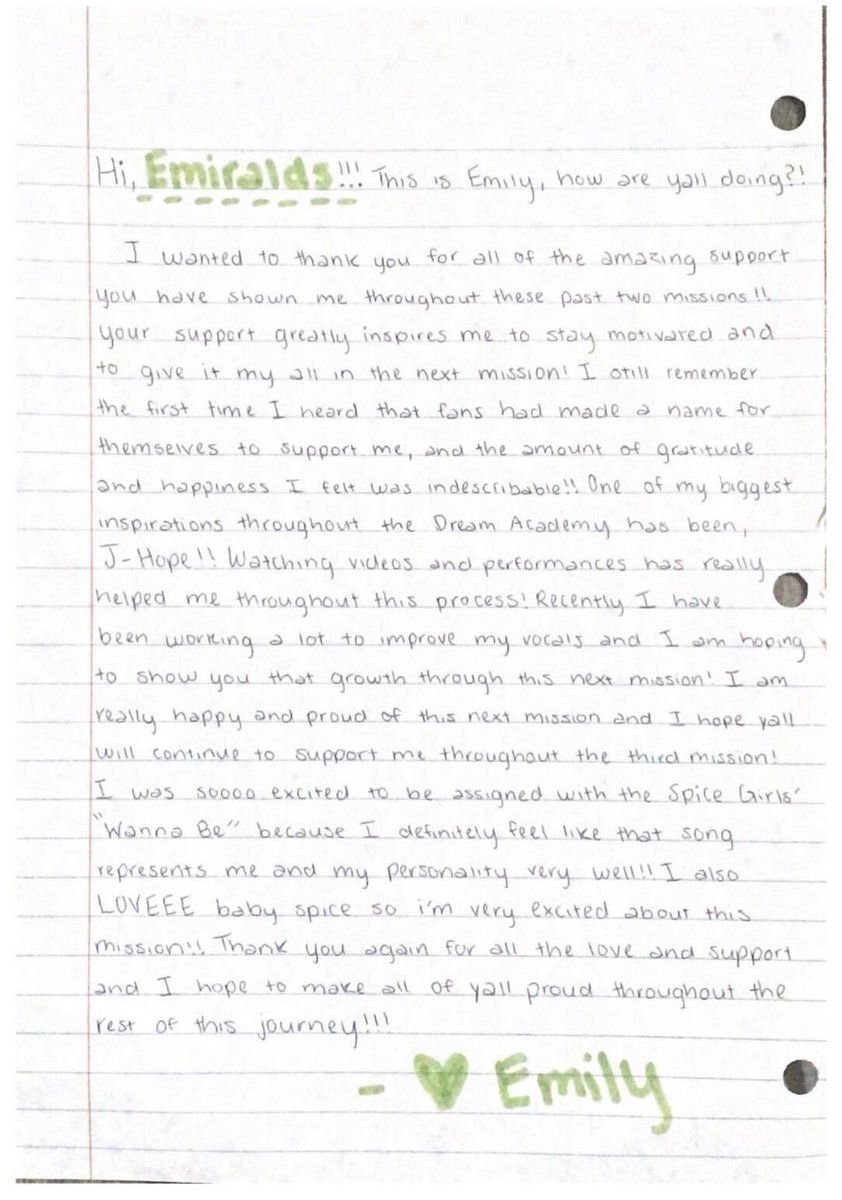 Hi, Emiralds!!! This is Emily, how are yall doing?!
I wanted to thank you for all of the amazing support
you have shown me throughout these past two missions!!
your support greatly inspires me to stay motivated and
to give it my all in the next mission! I still remember
the first time I heard that fans had made a name for
themselves to support me, and the amount of gratitude
and happiness I felt was indescribable!! One of my biggest
inspirations throughout the Dream Academy has been,
J-Hope!! Watching videos and performances has really
helped me throughout this process! Recently I have
been working a lot to improve my vocals and I am hoping
to show you that growth through this next mission! I am
really happy and proud of this next mission and I hope yall
will continue to support me throughout the third mission!
I was soooo excited to be assigned with the Spice Girls'
"Wanna Be" because I definitely feel like that song
represents me and my personality very well!! I also
LOVEEE baby spice so i'm very excited about this
mission!! Thank you again for all the love and support
and I hope to make all of yall proud throughout the
rest of this journey!!!
- ♥ Emily